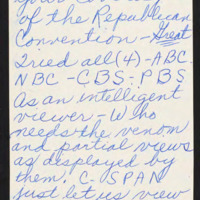 of the Republican
Convention - Great
Tried all (4) - ABC.
NBC - CBS - PBS
As an intelligent
viewer - Who
needs the venom
and partial views
as displayed by
them. C-SPAN
just let us view